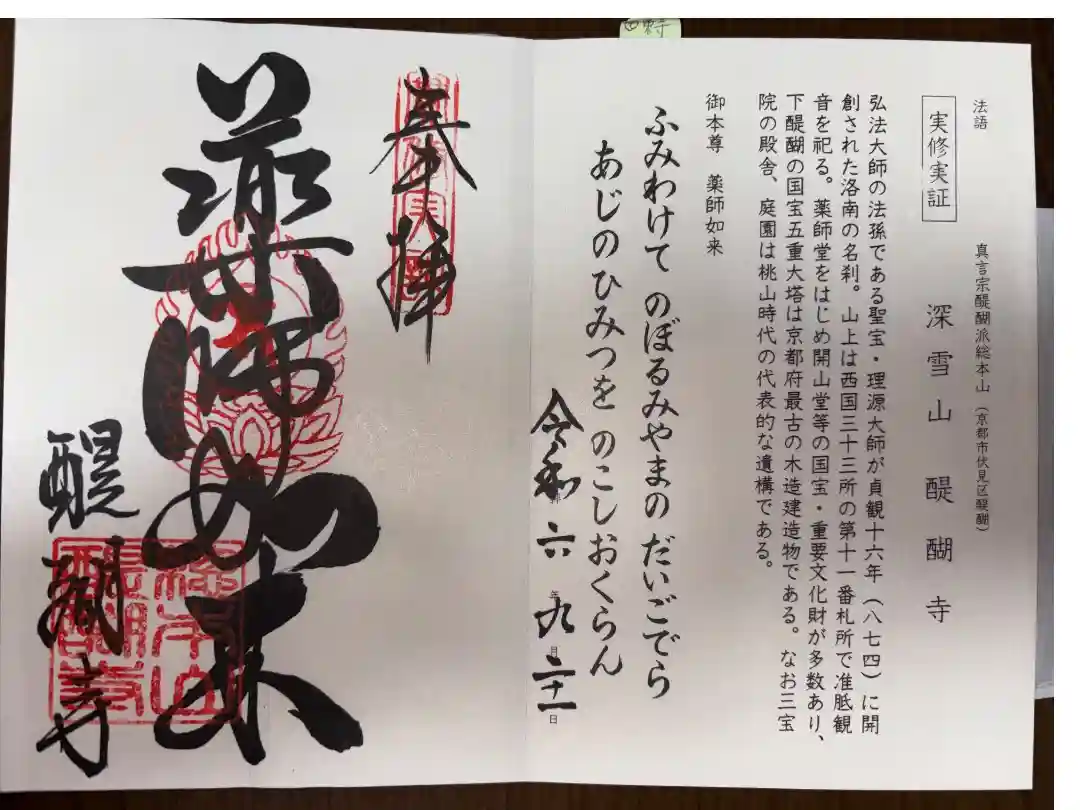 法語
真言宗醍醐派総本山（京都市伏見区醍醐）
実修実証
深雪山 醍醐寺
弘法大師の法孫である聖宝・理源大師が貞観十六年（八七四）に開
創された洛南の名刹。山上は西国三十三所の第十一番札所で准胝観
音を祀る。薬師堂をはじめ開山堂等の国宝・重要文化財が多数あり、
下醍醐の国宝五重大塔は京都府最古の木造建造物である。なお三宝
院の殿舎、庭園は桃山時代の代表的な遺構である。
御本尊 薬師如来
ふみわけて のぼるみやまの だいごでら
あじのひみつを のこしおくらん
令和六年九月二十一日
奉拝
薬師如来
醍醐寺